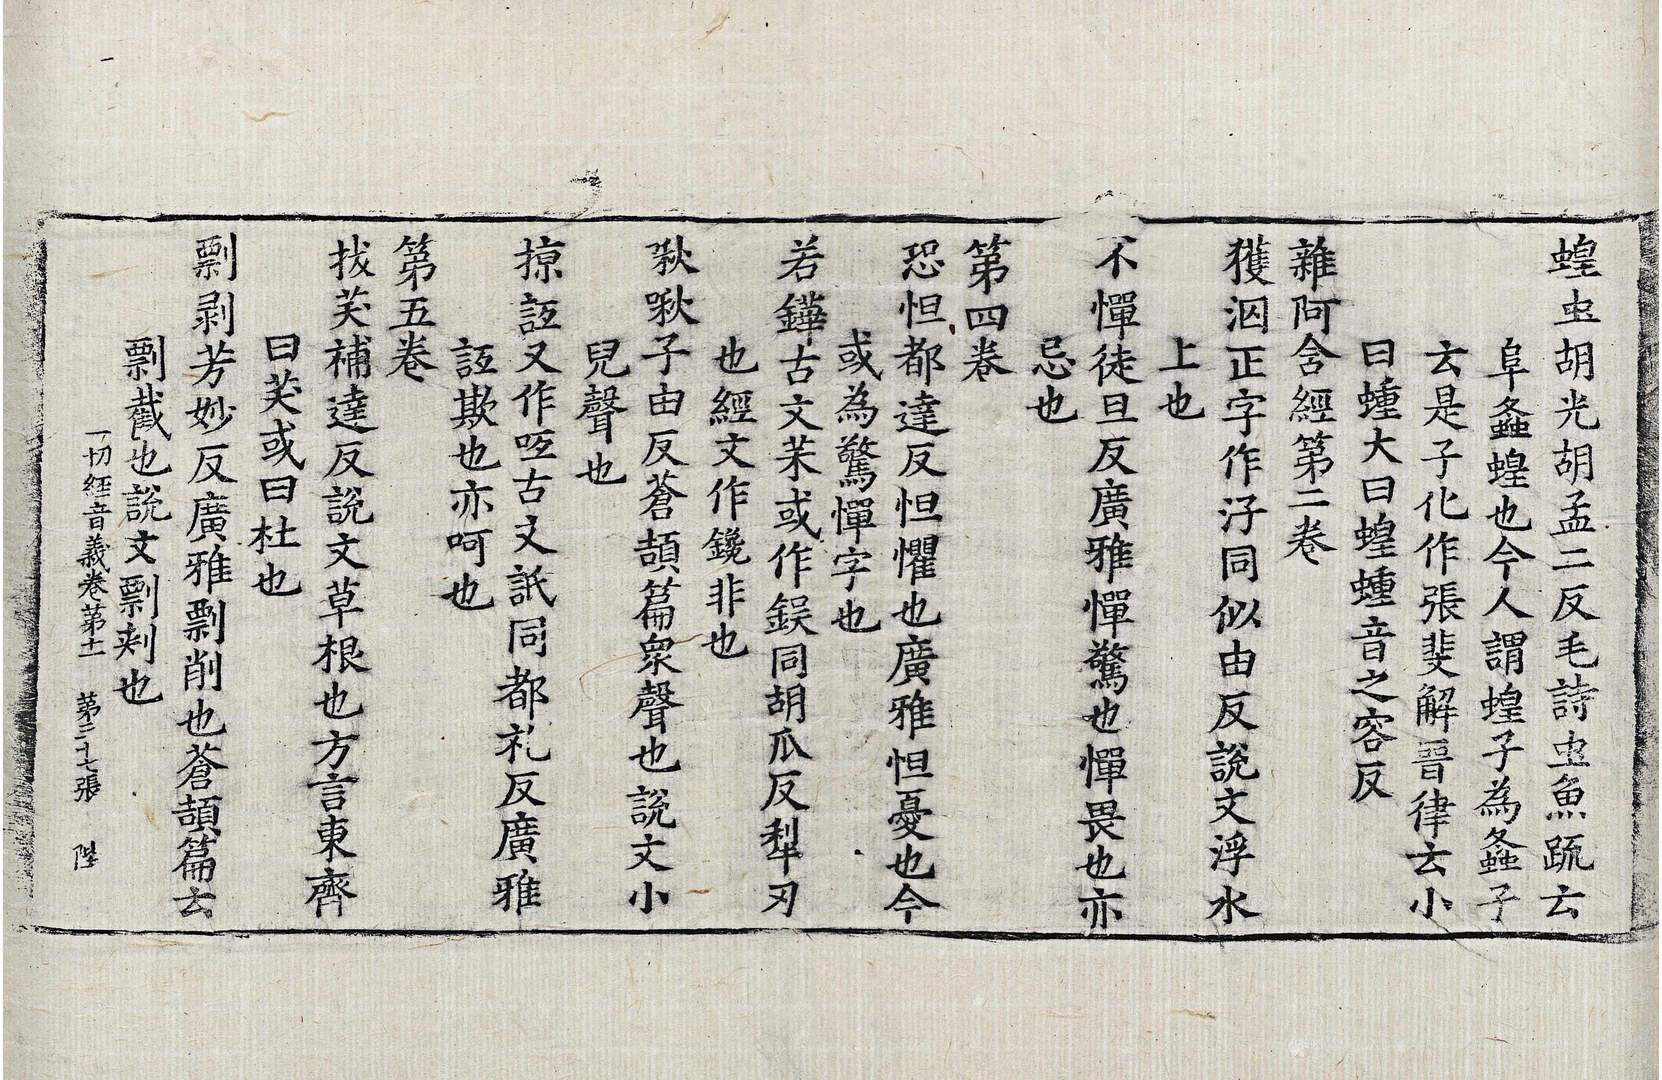 蝗虫胡光胡孟二反毛詩虫魚䟽云
阜螽蝗也今人謂蝗子為螽子
云是子化作張斐解晉律云小
曰蝩大曰蝗蝩音之容反
雜阿含經第二卷
獲泅正字作汓同似由反說文浮水
上也
不憚徒旦反廣雅憚驚也憚畏也亦
忌也
第四卷
恐怛都達反怛懼也廣雅怛憂也今
或為驚憚字也
若鏵古文茉或作鋘同胡瓜反犁刃
也經文作鑱非也
啾啾子由反蒼頡篇衆聲也說文小
兒聲也
掠詆又作呧古文䛡同都礼反廣雅
詆欺也亦呵也
第五卷
拔茇補達反說文草根也方言東齊
曰茇或曰杜也
剽剥芳妙反廣雅剽削也蒼頡篇云
剽截也說文剽刾也
一切經音義卷第十一 第三十七張 陛